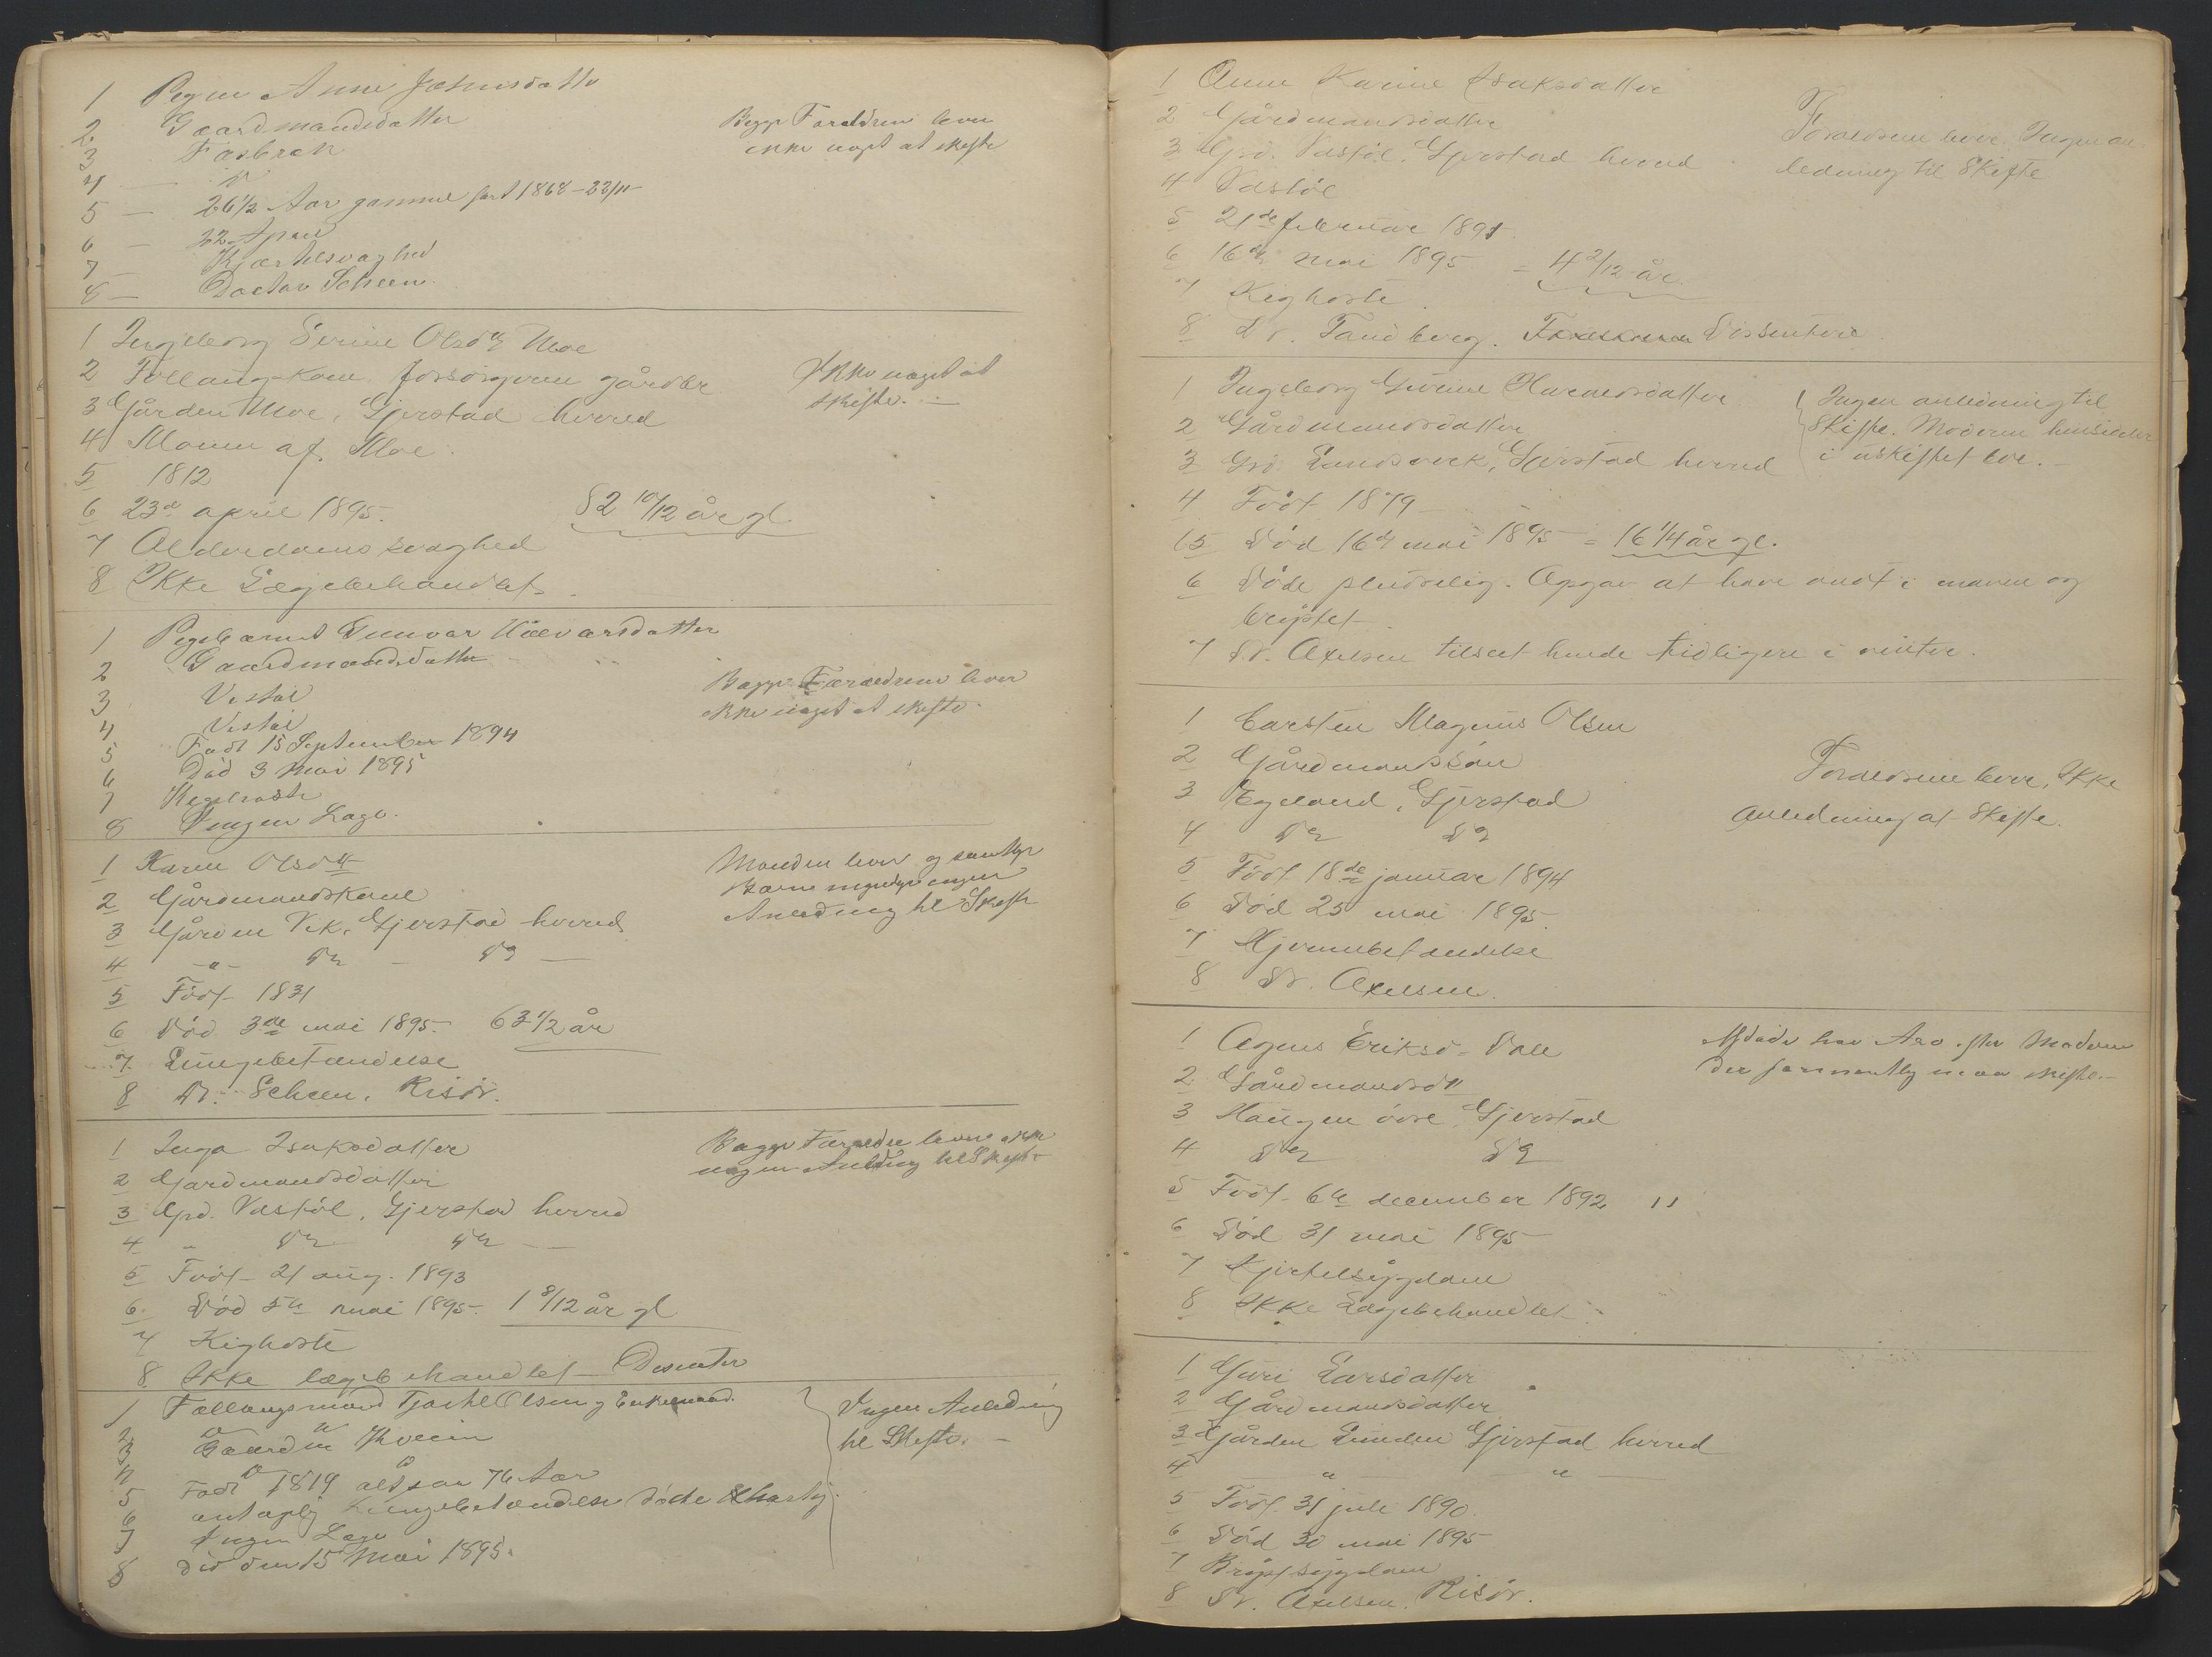 1 Pigen Anne Jæhnsdatter
2 Gaardmandsdatter
3 Fosbræk
4 — Do
5 — 26 1/2 Aar gammel født 1868 - 23/11 -
6 — 22 April
7 Kjærtelsvaghed
8 — Doctor Scheen.
Begge Foraldren lever
ikke noget at skifte
1 Ingeborg Serine Olsdtr Moe
2 Follaug-Kone, forsørgeren gårdbr
3 Gården Moe, Gjerstad herred
4 Moen af Moe.
5 1812
6 23de april 1895. 82 10/12 år gl.
7 Alderdoms svaghed
8 Ikke Lægebehandlet.
Ikke noget at
skifte. —
1 Pigebarnet Gunvor Halvorsdatter
2 Gaardmandsdatter
3 Vestøl
4 Vestøl
5 Født 15 September 1894
6 Død 3 Mai 1895
7 Kighoste
8 Ingen Læge.
Begge Foraeldrene lever
ikke noget at skifte.
1 Karen Olsdtr
2 Gårdmandskone
3 Gården Vik, Gjerstad herred
4 -"- Do — Do —
5 Født 1831
6 Død 3de mai 1895. 63 1/2 år
7 Lungebetændelse
8 Dr. Scheen, Risör.
Manden lever og samtlige
Børn myndige ingen
Anledning til Skifte
1 Inga Isaksdatter
2 Gardmandsdatter
3 Grd. Vestøl, Gjerstad herred
4 " Do Do —
5 Født 21 aug. 1893
6 Død 5te mai 1895. 1 8/12 år gl
7 Kighoste
8 Ikke lægebehandlet — Disenter
Begge Forældre lever ikke
nogen Anledning til Skifte
1 Føllaugsmand Tjøstel Olsen og Enkemand.
2 Do Do
3 Gaarden Kveim
4 Do Do
5 Født 1819 altsaa 76 Aar
6 antagelig Lungebetændelse døde hastig.
7 Ingen Læge
8 død den 15 Mai 1895.
Ingen Anledning
til Skifte. —
1 Anne Karine Isaksdatter
2 Gårdmandsdatter
3 Grd. Vestøl, Gjerstad herred
4 Vestøl
5 21de februar 1891
6 16de mai 1895 = 4 3/12 år.
7 Kighoste.
8 Dr. Tandberg. Dissentere.
Foraeldrene lever. Ingen an-
ledning til Skifte
1 Ingeborg Gurine Haraldsdatter
2 Gårdmandsdatter
3 Grd. Sandsvek, Gjerstad herred
4 Født 1879
5 Død 16de mai 1895 = 16 1/4 år gl.
6 Døde pludselig. Opgav at have ondt i maven og
brystet.
7 Dr. Axelsen tilset hende tidligere i vinter.
Ingen anledning til
Skifte. Moderen hensidder
i uskiftet bo. —
1 Carsten Magnus Olsen
2 Gårdmandssøn
3 Egeland, Gjerstad
4 Do Do
5 Født 18de januar 1894
6 Død 25 mai 1895.
7 Hjernebetændelse
8 Dr. Axelsen.
Foraeldrene lever. Ikke
anledning at Skifte.
1 Agnes Eriksd. Dale
2 Gårdmandsdtr
3 Haugen övre, Gjerstad
4 Do Do
5 Født 6te december 1892
6 Død 31 mai 1895
7 Kjertelsygdom
8 Ikke Lægebehandlet.
Afdøde har Arv efter Moderen
der formentlig maa skifte. —
1 Guri Larsdatter
2 Gårdmandsdatter
3 Gården Lunden Gjerstad herred
4 " — " —
5 Født 31 juli 1890.
6 Død 30 mai 1895
7 Brystsygdom
8 Dr. Axelsen. Risör.